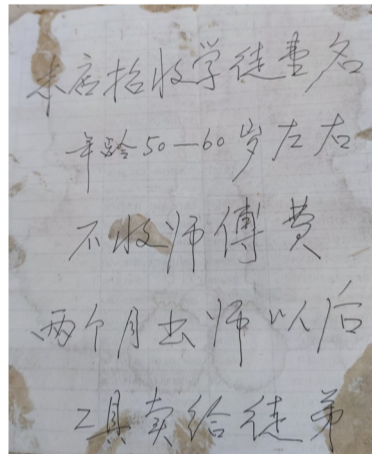 本店招收学徒壹名
年龄50—60岁左右
不收师傅費
两个月出师以后
工具卖给徒弟